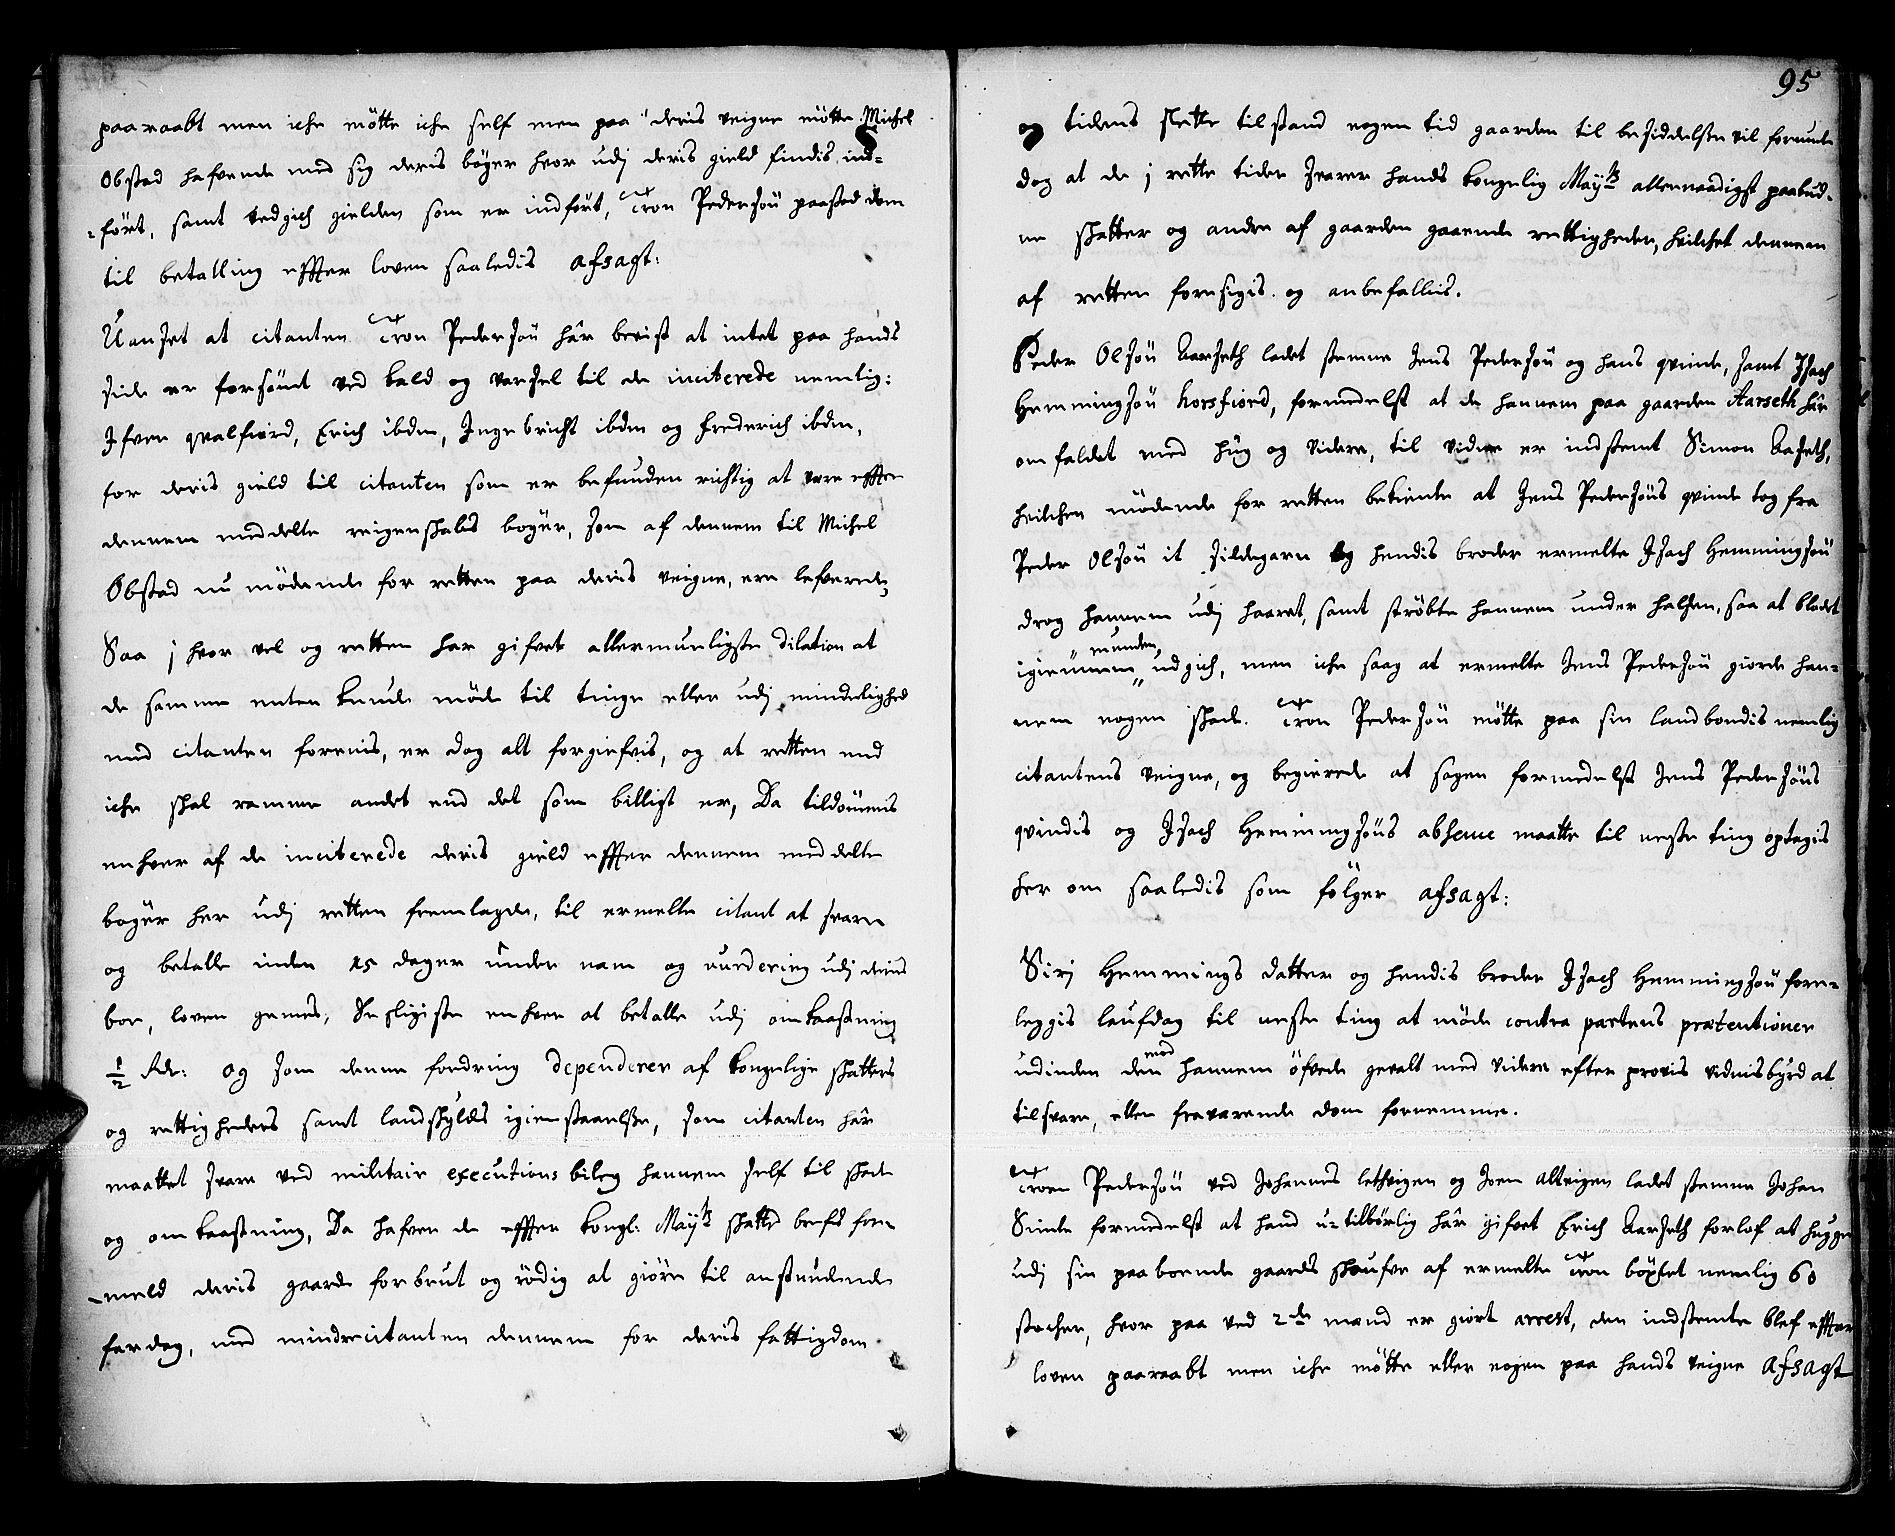 paaraabt men iche møtte iche self men paa deris veigne møtte Michel
Obstad hafvende med sig deris bøger hvor udj deris gield findis ind-
-ført, samt vedgich gielden som er indført, Tron Pedersøn paastod dom
til betalling effter loven saaledis afsagt:
Uanset at citanten Tron Pedersøn hâr bevist at intet paa hands
side er forsømt ved kald og varsel til de inciterede nemlig:
Ifver qvalfiord, Erich ibdm, Ingebricht ibdm og Frederich ibdm,
for deris gield til citanten som er befunden richtig at være effter
dennem meddelte reigenskabs bøger, som af dennem til Michel
Obstad nu mødende for retten paa deris veigne, ere lefverede,
Saa j hvor vel og retten har gifvet allermueligste dilation at
de samme enten kunde møde til tinge eller udj mindelighed
med citanten forenis, er dog alt forgiefvis, og at retten end
iche skal ramme andet end det som billigt er, Da tildømmis
enhver af de inciterede deris gield effter dennem meddelte
bøger her udj retten fremlagde, til ermelte citant at svare
og betalle inden 15 dager under nam og vurdering udj deris
boe, loven gemes, Sesligiste enhver at betalle udj omkaastning
½ Rdr: og som denne fordring dependerer af kongelige skatters
og rettigheders samt landskylds igienstaaelse, som citanten hâr
maattet svare ved militair executions bileg hannem self til skade
og omkaastning, Da hafver de effter kongl: Maytz skatte brefs for-
-meld deris gaarde forbrut og rødig at giøre til anstundende
fardag, med mindre citanten dennem for deris fattigdom
95
og tidens slette tilstand nogen tid gaarden til besiddelse vil forunde
dog at de j rette tider svarer hands kongelig Maytz allernaadigst paabud-
ne skatter og andre af gaarden gaaende rettigheder, hvilchet dennem
af retten foresigis og anbefallis.
Peder Olsøn Aarseth ladet stemne Jens Pedersøn og hans qvinde, samt Isach
Hemmingsøn korsfiord, formedelst at de hannem paa gaarden Aarseth hâr
omfaldet med hug og videre, til vidne er indstemt Simon Aaseth,
hvilchen mødende for retten bekiente at Jens Pedersøns qvinde tog fra
Peder Olsøn it sildegarn og hendis broder ermelte Isach Hemmingsøn
drog hannem udj haaret, samt strøbte hannem under halsen, saa at blodet
igiennem munden udgich, men iche saag at ermelte Jens Pedersøn giorde han-
nem nogen skade. Tron Pedersøn møtte paa sin landbondis nemlig
citantens veigne, og begierede at sagen formedelst Jens Pedersøns
qvindis og Isach Hemmingsøns absence maatte til neste ting optagis
her om saaledis som følger afsagt:
Sirj Hemmings datter og hendis broder Isach Hemmingsøn fore-
leggis laufdag til neste ting at møde contra partens prætentioner
udinden den mod hannem øfvede gevalt med videre efter provis vidnisbyrd at
tilsvare, eller fraværende dom fornemme.
Troen Pedersøn ved Johannes lethvigen og Joen altevigen ladet stemne Johan
Simle formedelst at hand u-tilbørlig hâr gifvet Erich Aarseth forlof at hugge
udj sin paaboende gaards skoufve af ermelte Tron bøxlet nemlig 60
stocher, hvor paa ved 2de mænd er giort arrest, den indstemte blef effter
loven paaraabt men iche møtte eller nogen paa hands veigne Afsagt